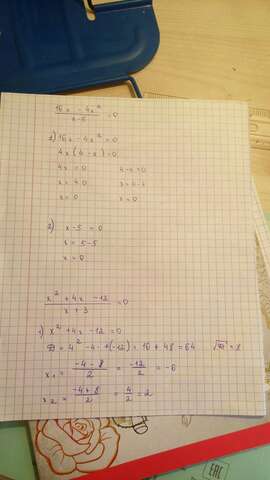 16x - 4x² / x-5 = 0
1) 16x - 4x² = 0
4x(4-x)=0
4x = 0 4-x=0
x = 4·0 x=4-4
x = 0 x=0
2) x-5 = 0
x = 5-5
x = 0
x² + 4x - 12 / x + 3 = 0
1) x² + 4x - 12 = 0
D = 4² - 4 · 1(-12) = 16 + 48 = 64 √D = 8
x₁ = -4 - 8 / 2 = -12 / 2 = -6
x₂ = -4 + 8 / 2 = 4 / 2 = 2
EAC